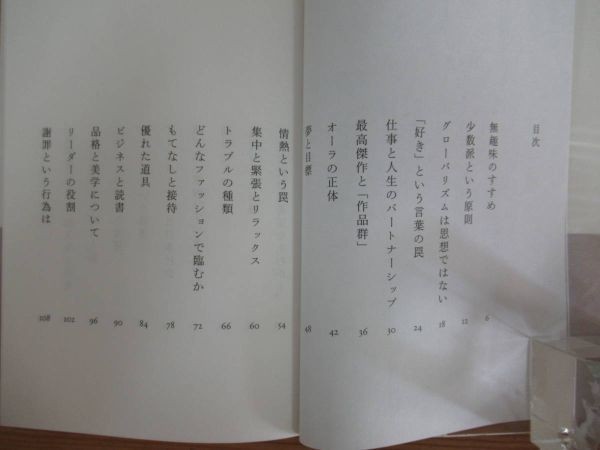 目次
無趣味のすすめ 6
少数派という原則 12
グローバリズムは思想ではない 18
「好き」という言葉の罠 24
仕事と人生のパートナーシップ 30
最高傑作と「作品群」 36
オーラの正体 42
夢と目標 48
情熱という罠 54
集中と緊張とリラックス 60
トラブルの種類 66
どんなファッションで臨むか 72
もてなしと接待 78
優れた道具 84
ビジネスと読書 90
品格と美学について 96
リーダーの役割 102
謝罪という行為は 108